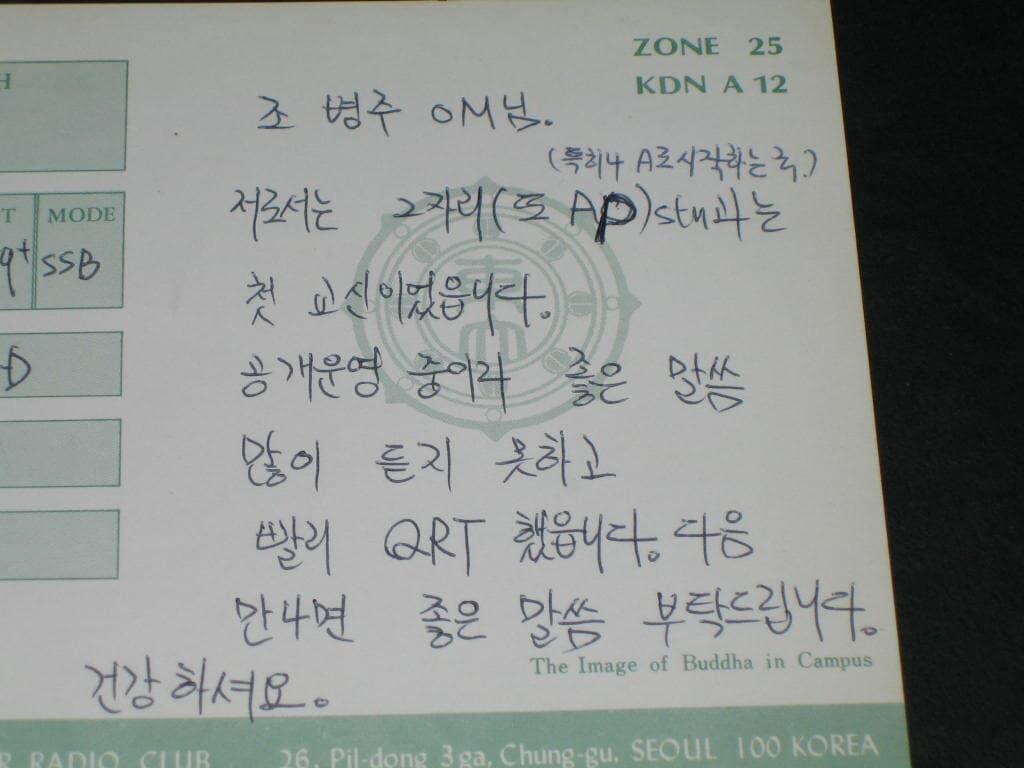 ZONE 25
KDN A 12
H
조 병주 OM님.
(특히나 A로 시작하는 국.)
저로서는 2자리(또 AP)stn과는
T MODE
9+ SSB
첫 교신이었읍니다.
D
공개운영 중이라 좋은 말씀
많이 듣지 못하고
빨리 QRT 했읍니다. 다음
만나면 좋은 말씀 부탁드립니다.
The Image of Buddha in Campus
건강하셔요.
R RADIO CLUB 26, Pil-dong 3ga, Chung-gu, SEOUL 100 KOREA